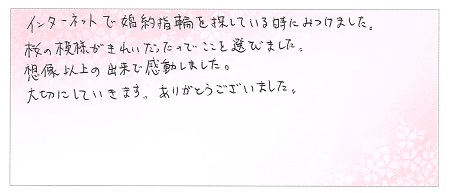 インターネットで婚約指輪を探している時にみつけました。
桜の模様がきれいだったのでここを選びました。
想像以上の出来で感動しました。
大切にしていきます。ありがとうございました。